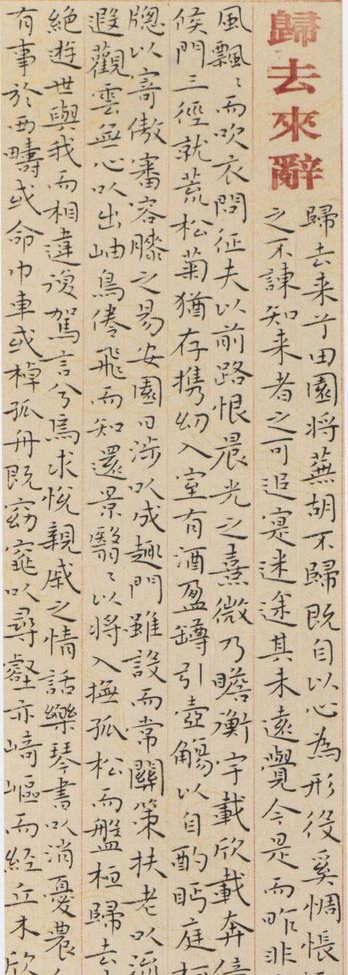 歸去來辭
歸去来兮田園將蕪胡不歸既自以心為形役奚惆悵
之不諫知来者之可追寔迷途其未遠覺今是而昨非
風飄〻而吹衣問征夫以前路恨晨光之熹微乃瞻衡宇載欣載奔僮
侯門三徑就荒松菊猶存携幼入室有酒盈罇引壺觴以自酌眄庭柯
牕以寄傲審容膝之易安園日涉以成趣門雖設而常關策扶老以流
遐觀雲無心以出岫鳥倦飛而知還景翳〻以將入撫孤松而盤桓歸去
絶遊世與我而相違復駕言兮焉求悅親戚之情話樂琴書以消憂農
有事於西疇或命巾車或棹孤舟既窈窕以尋壑亦崎嶇而經丘木欣